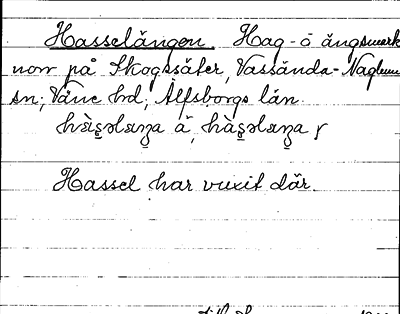 Hasselängen. Hag- o ängsmark
norr på Skogssäter, Vassända-Naglum
sn; Väne hd; Älfsborgs län.
Hassel har vuxit där.